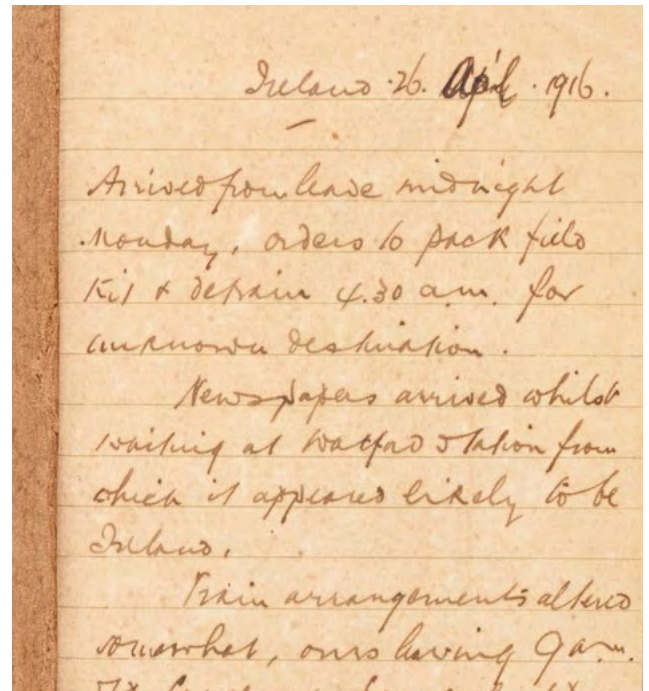 Ireland · 26. April · 1916.
Arrived from leave midnight
Monday, orders to pack field
Kit & detrain 4.30 a.m. for
unknown destination.
Newspapers arrived whilst
waiting at Watford Station from
which it appeared likely to be
Ireland.
Train arrangements altered
somewhat, ours leaving 9 a.m.